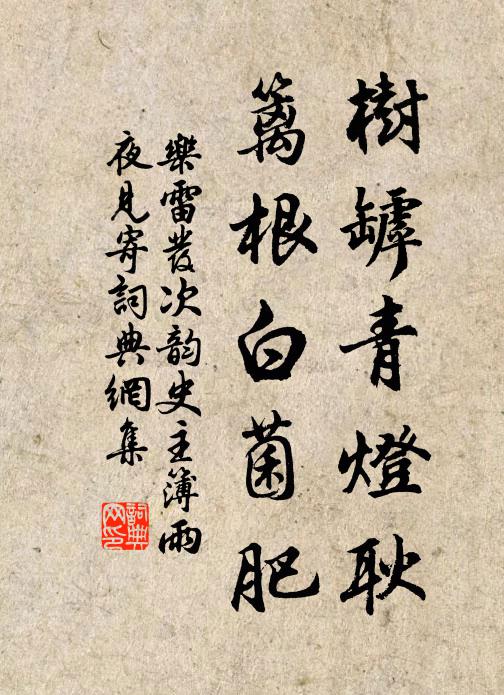 樹罅青燈耿
籬根白菌肥
樂雷發次韵史主簿雨
夜見寄詞典網集
詞典
网印